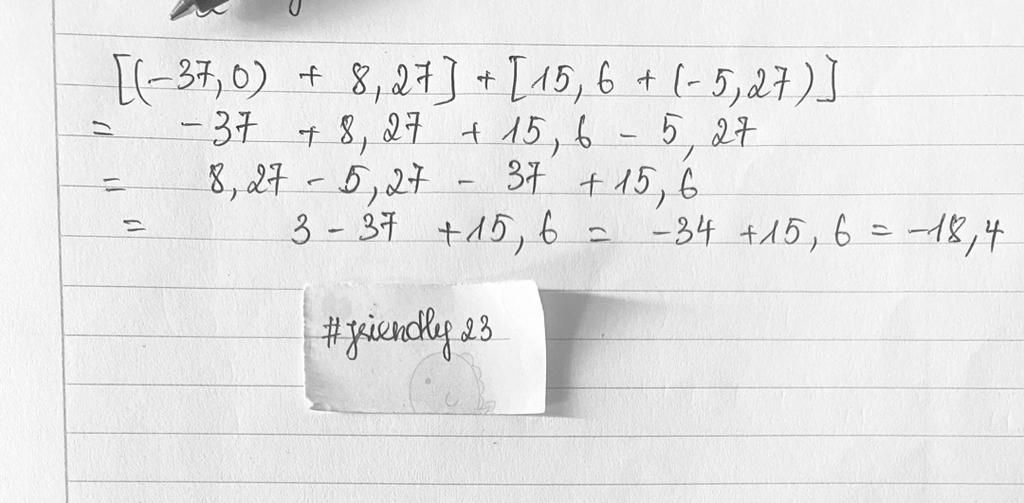 [(-37,0) + 8,27] + [15,6 + (-5,27)]
= -37 + 8,27 + 15,6 - 5,27
= 8,27 - 5,27 - 37 + 15,6
= 3 - 37 + 15,6 = -34 + 15,6 = -18,4
#friendly23